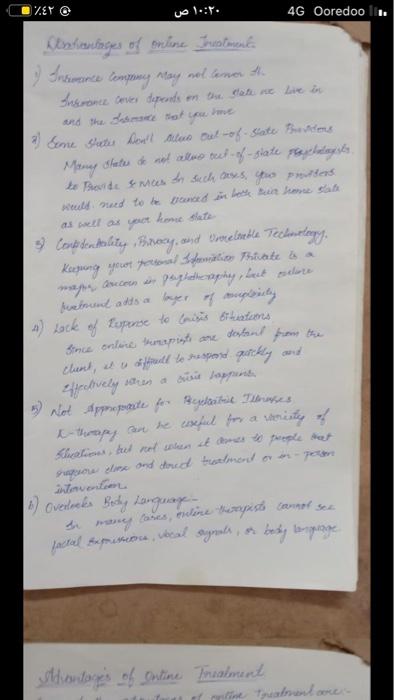 %٤٢
١٠:٢٠ ص
4G Ooredoo
Disadvantages of Online Treatment
1) Insurance Company May not Cover It.
Insurance cover depends on the state we live in
and the Insurance that you have
2) Some States Don't Allow Out-of-State Providers
Many states do not allow out-of-state psychologists
to Provide services In such cases, your providers
would need to be licenced in both their home state
as well as your home state
3) Confidentiality, Privacy, and Unreliable Technology.
Keeping your personal Information Private is a
major concern in psychotherapy, but online
treatment adds a layer of complexity
4) Lack of Response to Crisis Situations
Since online therapists are distant from the
client, it is difficult to respond quickly and
effectively when a crisis happens.
5) Not Appropriate for Psychiatric Illnesses
E-therapy can be useful for a variety of
situations, but not when it comes to people that
require close and direct treatment or in-person
intervention
6) Overlooks Body Language -
In many cases, online therapists cannot see
facial expressions, vocal signals, or body language
Advantages of Online Treatment
of online Treatment are:-